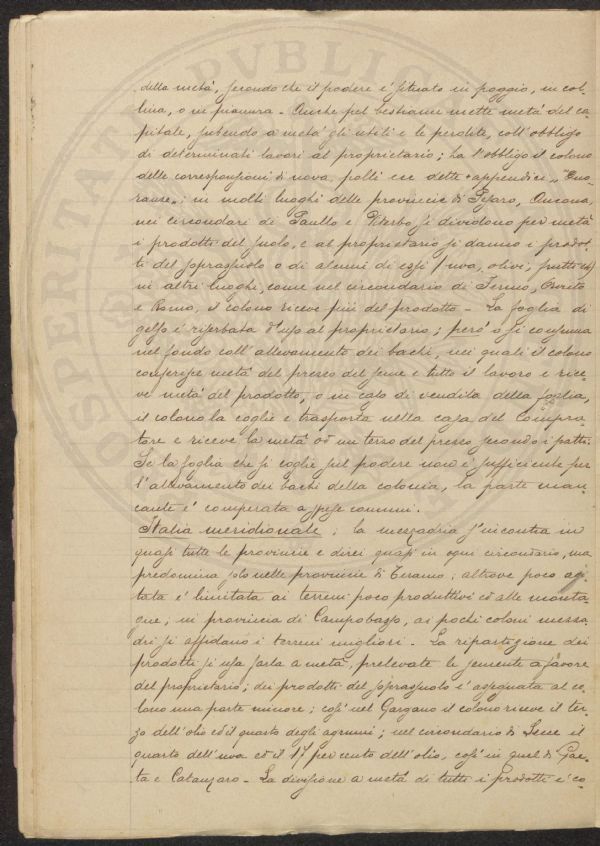 della metà, secondo che il podere è situato in poggio, in col-
lina, o in pianura - Anche pel bestiame mette metà del ca-
pitale, subendo a metà gli utili e le perdite, coll'obbligo
di determinati lavori al proprietario; ha l'obbligo il colono
delle corresponsioni di uova, polli ecc dette "appendici" "Ono-
ranze"; in molti luoghi delle provincie di Pesaro, Ancona,
nei circondari di e Viterbo si dividono per metà
i prodotti del suolo, e al proprietario si danno i prodot-
ti del soprassuolo o di alcuni di essi (uva, olivi, frutti &)
in altri luoghi, come nel circondario di Fermo,
e Roma, il colono riceve più del prodotto - La foglia di
gelso è riserbata d'uso al proprietario; però o si consuma
nel fondo coll'allevamento dei bachi, nei quali il colono
conferisce metà del prezzo del seme e tutto il lavoro e rice-
ve metà del prodotto, o in caso di vendita della foglia,
il colono la coglie e trasporta nella casa del Compra-
tore e riceve la metà od un terzo del prezzo secondo i patti.
Se la foglia che si coglie sul podere non è sufficiente per
l'allevamento dei bachi della colonia, la parte man-
cante è comperata a spese comuni.
Italia meridionale; la mezzadria s'incontra in
quasi tutte le provincie e direi quasi in ogni circondario, ma
predomina solo nelle provincie di Teramo; altrove poco agi-
tata è limitata ai terreni poco produttivi ed alle monta-
gne; in provincia di Campobasso, ai pochi coloni mezza-
dri si affidano i terreni migliori - La ripartizione dei
prodotti si usa farla a metà, prelevate le semente a favore
del proprietario; dei prodotti del soprassuolo è assegnata al co-
lono una parte minore; così nel Gargano il colono riceve il ter-
zo dell'olio ed il quarto degli agrumi; nel circondario di Lecce il
quarto dell'uva ed il 17 per cento dell'olio, così in quel di Gae-
ta e Catanzaro - La divisione a metà di tutti i prodotti è co-